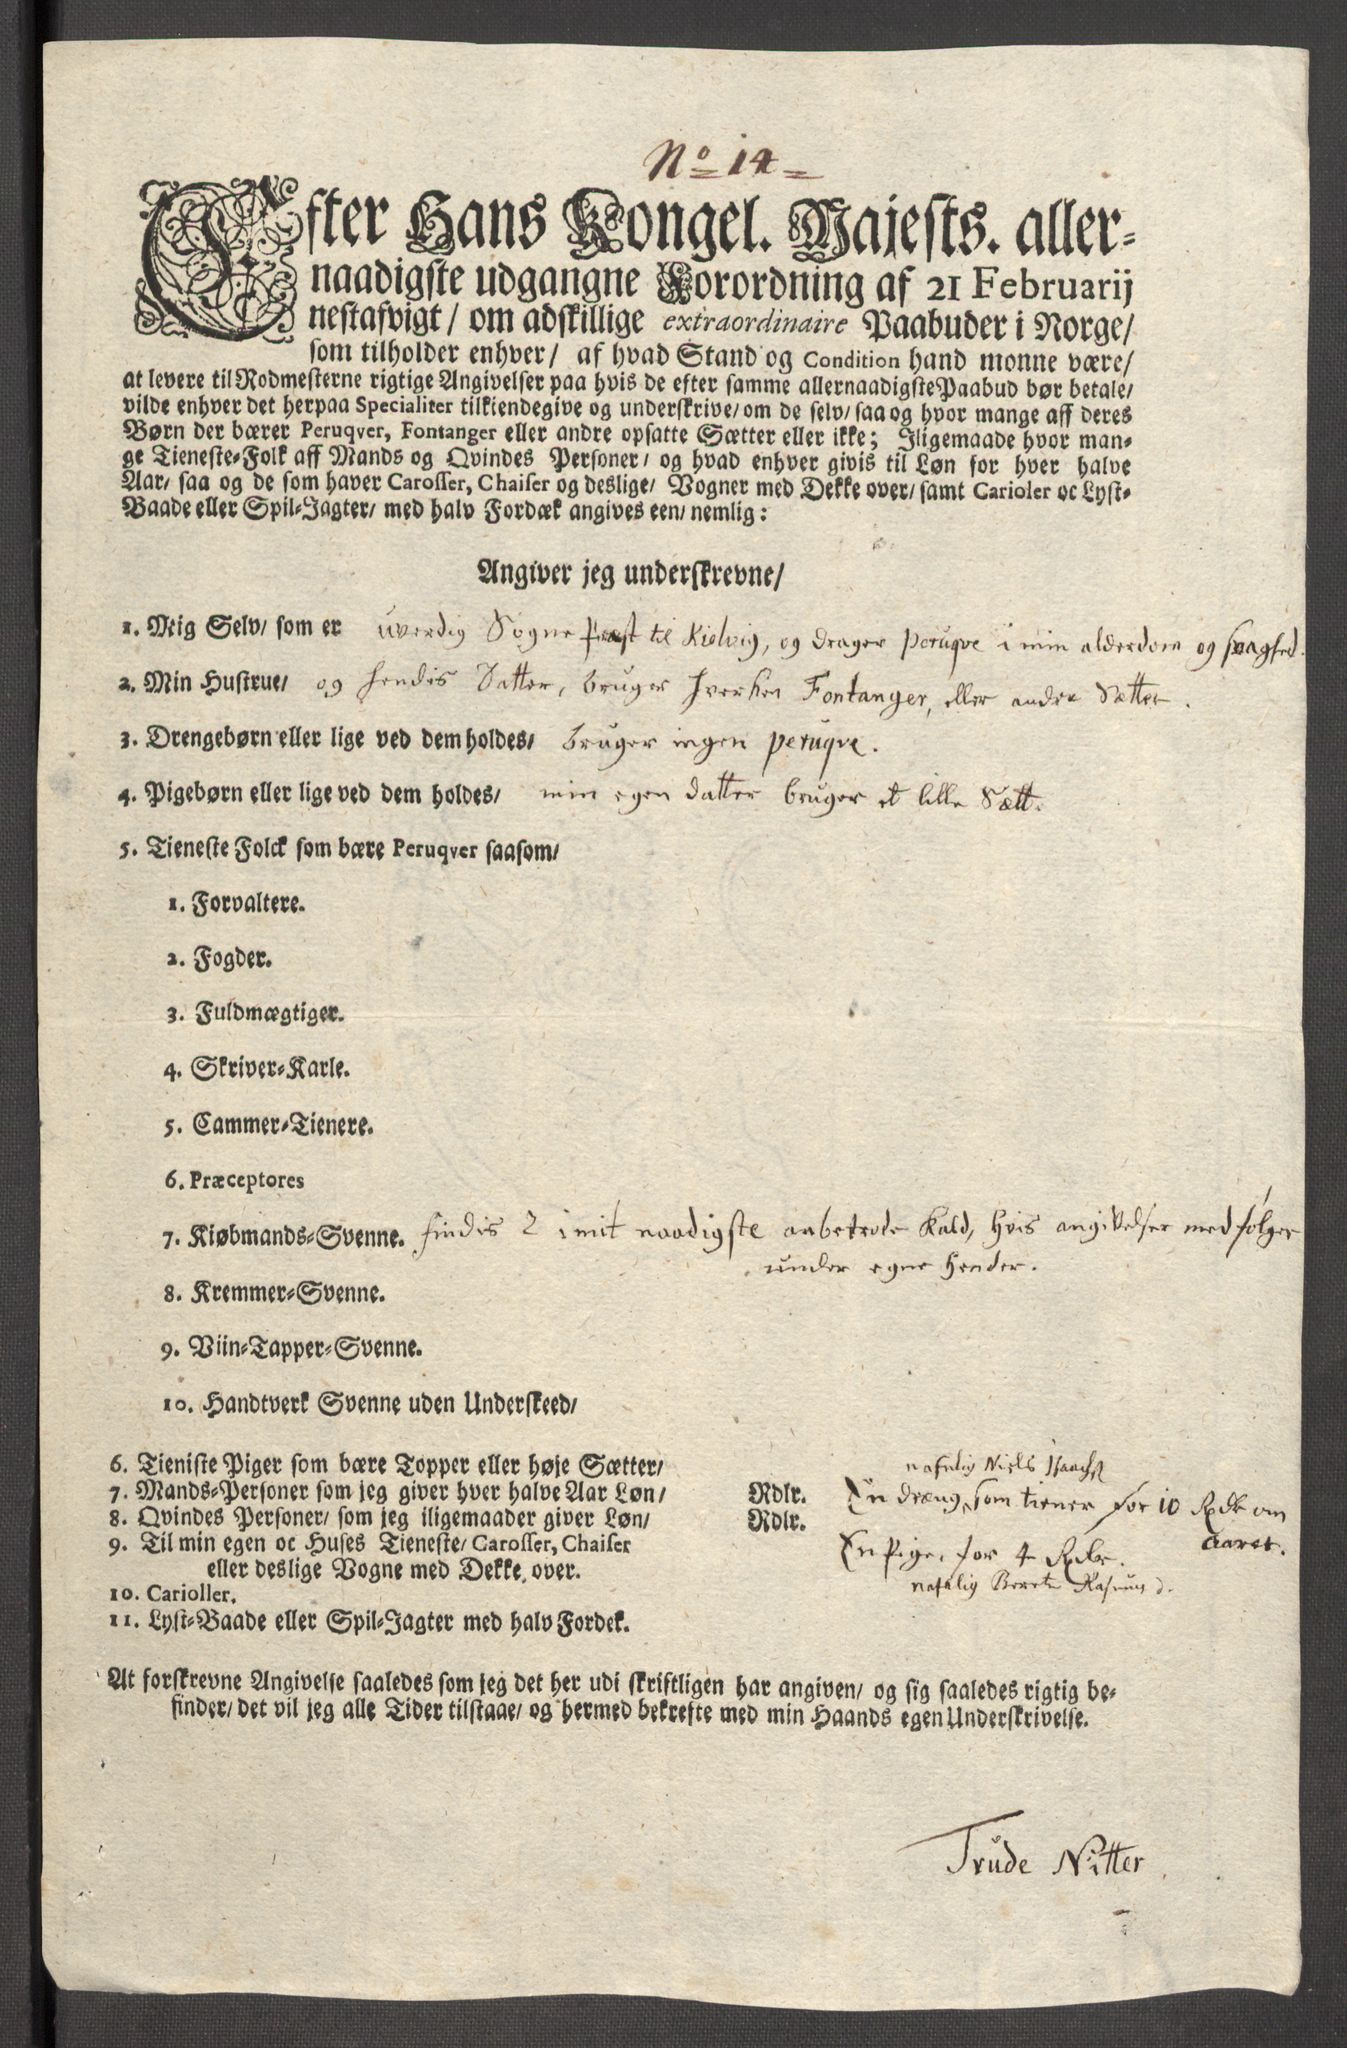 No 14
Efter Hans Kongel. Majests. aller-
naadigste udgangne Forordning af 21 Februarij
nestafvigt/ om adskillige extraordinaire Paabuder i Norge/
som tilholder enhver/ af hvad Stand og Condition hand monne være/
at levere til Rodmesterne rigtige Angivelser paa hvis de efter samme allernaadigste Paabud bør betale/
vilde enhver det herpaa Specialiter tilkiendegive og underskrive/ om de selv/ saa og hvor mange aff deres
Børn der bærer Peruqver, Fontanger eller andre opsatte Sætter eller ikke; Iligemaade hvor man-
ge Tieneste-Folk aff Mands og Qvindes Personer/ og hvad enhver givis til Løn for hver halve
Aar/ saa og de som haver Carosser, Chaiser og deslige/ Vogner med Dekke over/ samt Carioler oc Lyst-
Baade eller Spil-Jagter/ med halv Fordæk angives een/ nemlig:
Angiver jeg underskrevne/
1. Mig Selv/ som er uverdig Sogne Præst til Kielvig, og drager peruqve i min alderdom og svaghed.
2. Min Hustrue/ og hendis Datter, bruger hverken Fontanger, eller andre Sætter.
3. Drengebørn eller lige ved dem holdes/ bruger ingen peruqve.
4. Pigebørn eller lige ved dem holdes/ min egen datter bruger et lille Sætt.
5. Tieneste Folck som bære Peruqver saasom/
1. Forvaltere.
2. Fogder.
3. Fuldmægtiger.
4. Skriver-Karle.
5. Cammer-Tienere.
6. Præceptores
7. Kiøbmands-Svenne. findis 2 i mit naadigste anbetrode Kald, hvis angivelser medfølger
under egne Hender.
8. Kremmer-Svenne.
9. Viin-Tapper-Svenne.
10. Handtverk Svenne uden Underskeed/
6. Tieniste Piger som bære Topper eller høje Sætter/ nafnlig Niels Isachs.
7. Mands-Personer som jeg giver hver halve Aar Løn/ Rdlr. En dreng, som tiener for 10 Rdlr om
8. Qvindes Personer/ som jeg iligemaader giver Løn/ Rdlr. aaret.
9. Til min egen oc Huses Tieneste/ Carosser, Chaiser En Pige, for 4 Rdlr.
eller deslige Vogne med Dekke over. nafnlig Berete Rasmus d.
10. Carioller.
11. Lyst-Baade eller Spil-Jagter med halv Fordek.
At forskrevne Angivelse saaledes som jeg det her udi skriftligen har angiven/ og sig saaledes rigtig be-
finder/ det vil jeg alle Tider tilstaae/ og hermed bekrefte med min Haands egen Underskrivelse.
Trude Nitter